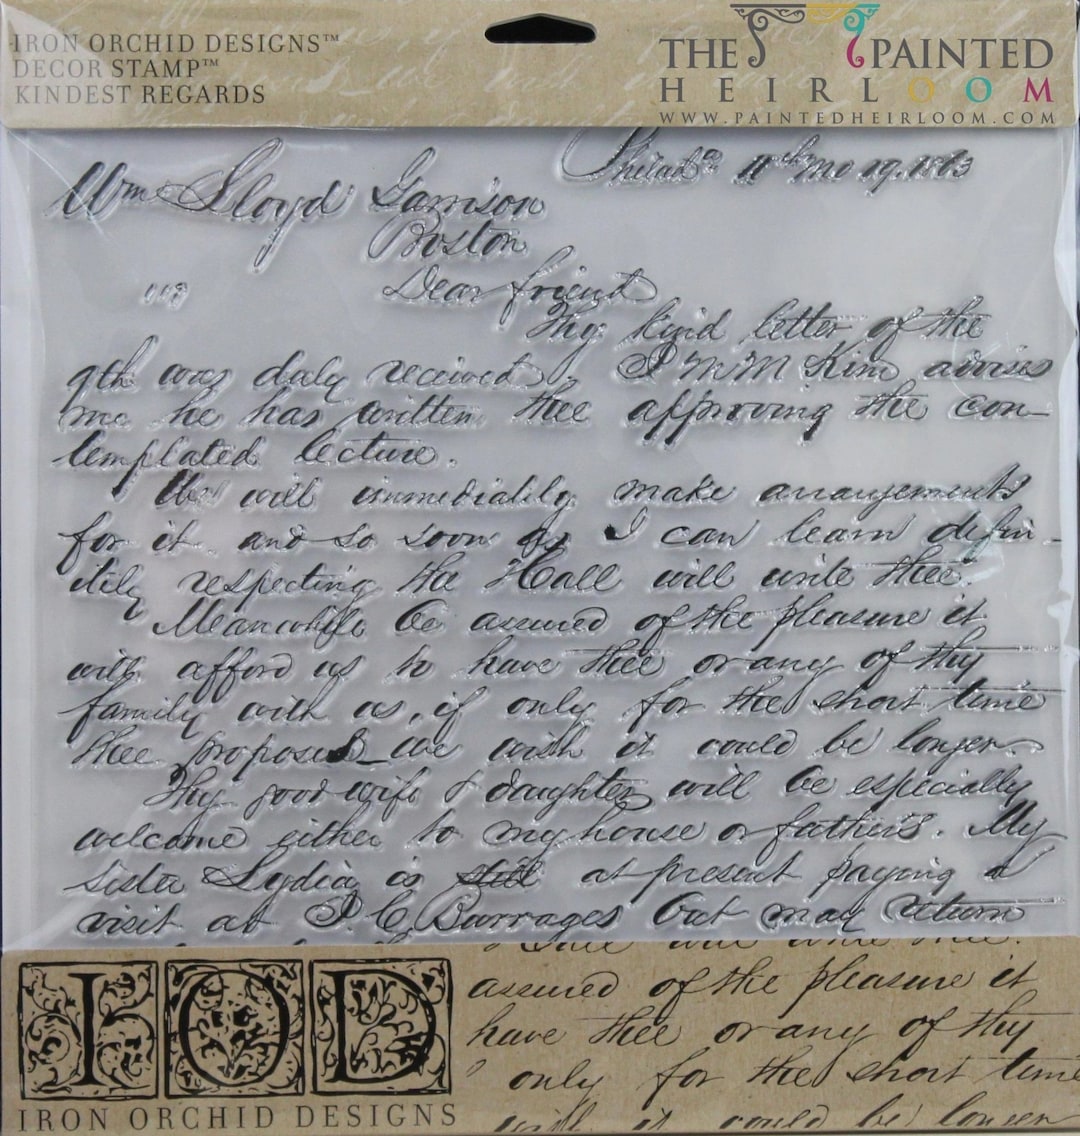 IRON ORCHID DESIGNS™
DECOR STAMP™
KINDEST REGARDS
THE PAINTED
HEIRLOOM
WWW.PAINTEDHEIRLOOM.COM
Philada 11th mo 19. 1863
Wm Lloyd Garrison
Boston
Dear friend
Thy kind letter of the
9th was duly received. J M McKim advises
me he has written thee approving the con-
templated lecture.
We will immediately make arrangements
for it. and so soon as I can learn defin-
itely respecting the Hall will write thee.
Meanwhile be assured of the pleasure it
will afford us to have thee or any of thy
family with us, if only for the short time
thee proposed_we wish it could be longer.
Thy good wife & daughter will be especially
welcome either to my house or father's. My
sister Lydia is still at present paying a
visit at J. C. Burrages but may return
assured of the pleasure it
have thee or any of thy
only for the short time
will it could be longer
IOD
IRON ORCHID DESIGNS